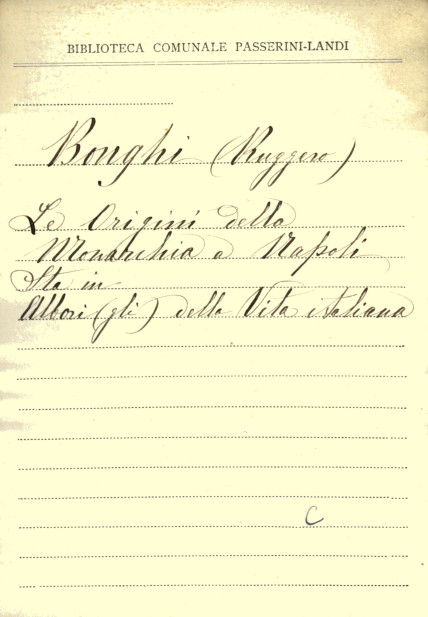 BIBLIOTECA COMUNALE PASSERINI-LANDI
Bonghi (Ruggero)
Le Origini della
Monarchia a Napoli
Sta in
Albori (gli) della Vita italiana
C